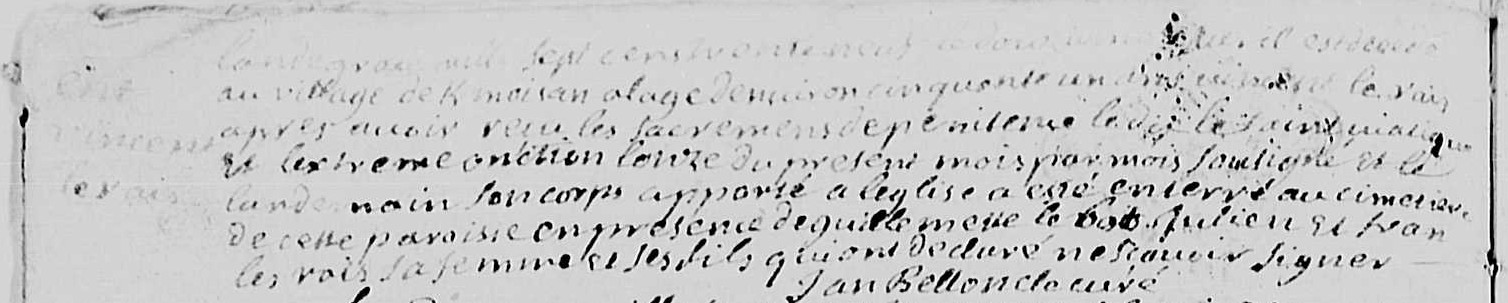 lan de grace mille sept cens trente neuf le dou il est decede
Ent au village de Kmoisan a lage denviron cinquante un ans vincent le rais
vincent apres avoir reçu les sacremens de penitence le dix le saint viatique
le rais et lextreme onction lonze du present mois par mois soussigné et le
landemain son corps apporté a leglise a esté enterré au cimetiere
de cette paroisse en presence de guillemette le bob Julien et Jvan
les rois sa femme et ses fils qui ont declaré ne scavoir signer
Jan Bellon curé